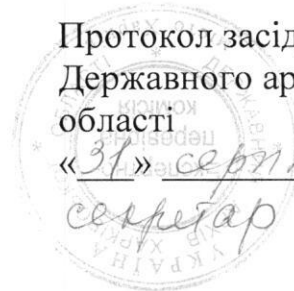 Протокол засід
Державного ар
області
«31» серпн
секретар